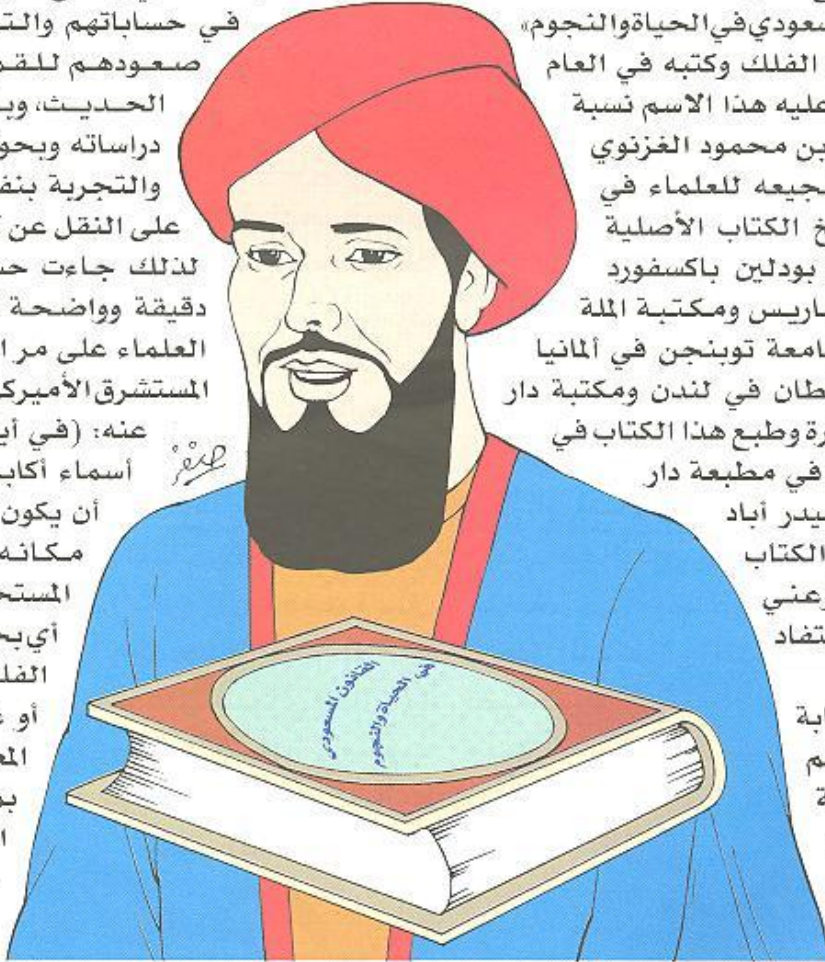 سعودي في الحياة والنجوم»
الفلك وكتبه في العام
عليه هذا الاسم نسبة
بن محمود الغزنوي
جيعه للعلماء في
خ الكتاب الأصلية
بودلين باكسفورد
اريس ومكتبة الملة
امعة توبنجن في ألمانيا
طان في لندن ومكتبة دار
رة وطبع هذا الكتاب في
في مطبعة دار
يدر أباد
الكتاب
رعني
تفاد
ابة
م
ة
في حساباتهم والتـ
صعودهم للقمـ
الحديث، وبـ
دراساته وبحو
والتجربة بنفـ
على النقل عن
لذلك جاءت حسـ
دقيقة وواضحة
العلماء على مر ا
المستشرق الأميركـ
عنه: (في أيـ
أسماء أكابـ
أن يكون
مكانه
المستحـ
أي بحـ
الفلـ
أو عـ
المعـ
بـ
ا
القانون المسعودي
في الحياة والنجوم